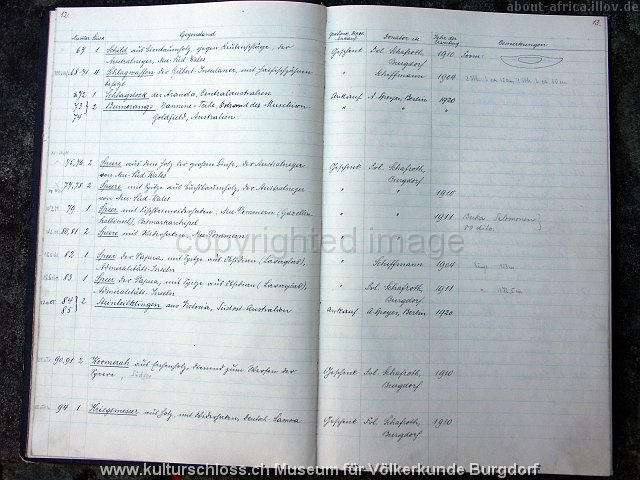 about-africa.illov.de
12.
13.
Nummer Stück Gegenstand Donator etc. Jahr der Bemerkungen
67 1 Schild aus Eisenbaumholz, gegen Keulenschläge, der Geschenk Sol. Schafroth, 1910 Form:
Australneger, Neu-Süd-Wales Burgdorf
68-71 4 Schlagwaffen der Gilbert-Insulaner, mit Haifischzähnen " Schiffmann 1904
besetzt
72 1 Schlagstock der Aranda, Centralaustralien Ankauf A. Speyer, Berlin 1920
73 2 Bumerangs Ostrand des Murchison- " " "
74 Goldfield, Australien
75,76 2 Speere aus dem Holz der der Australneger Geschenk Sol. Schafroth,
von Neu-Süd-Wales Burgdorf
77,78 2 Speere mit Spitze aus der Australneger " " 1910
von Neu-Süd-Wales
79 1 Speer mit Neu-Pommern (Gazellen- " " 1911 Buka Salomonen
halbinsel), Bismarckarchipel 80 dito.
80,81 2 Speere mit Widerhaken, Neu-Pommern
copyrighted image
82 1 Speer der Papua, mit Spitze aus Obsidian (Lavaglas), " Schiffmann 1904
Admiralitäts-Inseln
83 1 Speer der Papua, mit Spitze aus Obsidian (Lavaglas), " Sol. Schafroth, 1911
Admiralitäts-Inseln Burgdorf
84 2 Steinbeilklingen aus Victoria, Südost-Australien Ankauf A. Speyer, Berlin 1920
85
90,91 2 Womerah aus dienend zum Werfen der Geschenk Sol. Schafroth, 1910
Speere, Südsee Burgdorf
94 1 Kriegsmesser aus Holz, mit Widerhaken, Deutsch-Samoa Geschenk Sol. Schafroth, 1910
Burgdorf
www.kulturschloss.ch Museum für Völkerkunde Burgdorf